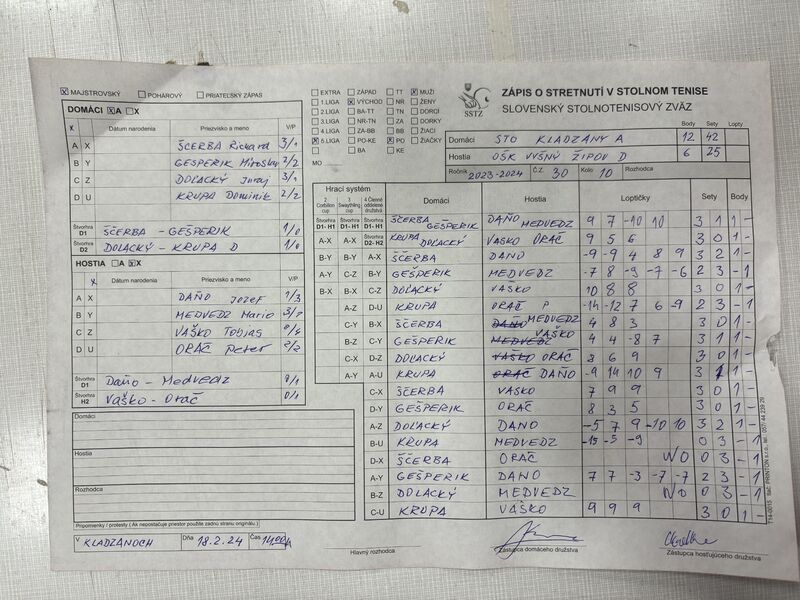 MAJSTROVSKÝ POHÁROVÝ PRIATEĽSKÝ ZÁPAS
DOMÁCI X A X
Dátum narodenia Priezvisko a meno V/P
A X ŠČERBA Richard 3/1
B Y GEŠPERIK Miroslav 2/2
C Z DOĽACKÝ Juraj 3/1
D U KRUPA Dominik 2/2
Štvorhra D1 ŠČERBA - GEŠPERIK 1/0
Štvorhra D2 DOLACKÝ - KRUPA D 1/0
HOSTIA A X X
Dátum narodenia Priezvisko a meno V/P
A X DAŇO Jozef 1/3
B Y MEDVEDZ Mario
C Z VAŠKO Tobias
D U ORÁČ Peter 2/2
Štvorhra D1 Daňo - Medvedz 0/1
Štvorhra H2 Vaško - Oráč 0/1
Domáci
Hostia
Rozhodca
Pripomienky / protesty ( Ak nepostačuje priestor použite zadnú stranu originálu.)
V KLADZANOCH Dňa 18.2.24 Čas 14,00h
Hlavný rozhodca
EXTRA ZÁPAD TT X MUŽI
1.LIGA X VÝCHOD NR ŽENY
2.LIGA BA-TT TN DORCI
3.LIGA NR-TN ZA DORKY
4.LIGA ZA-BB BB ŽIACI
X 5.LIGA PO-KE X PO ŽIAČKY
BA KE
MO
SSTZ
ZÁPIS O STRETNUTÍ V STOLNOM TENISE
SLOVENSKÝ STOLNOTENISOVÝ ZVÄZ
Body Sety Lopty
Domáci STO KLADZANY A 12 42
Hostia OŠK VYŠNÝ ŽIPOV D 6 25
Ročník 2023-2024 Č.Z. 30 Kolo 10 Rozhodca
Hrací systém Domáci Hostia Loptičky Sety Body
2 Corbillon cup 3 Swaythling cup 4 Členné oddelene družstvá
Štvorhra D1- H1 Štvorhra D1- H1 Štvorhra D1- H1 ŠČERBA GEŠPERIK DAŇO MEDVEDZ 9 7 -10 10 3 1 1 -
A-X A-X Štvorhra D2- H2 KRUPA DOĽACKÝ VAŠKO ORÁČ 9 5 6 3 0 1 -
B-Y B-Y A-X ŠČERBA DAŇO -9 -9 4 8 9 3 2 1 -
A-Y C-Z B-Y GEŠPERIK MEDVEDZ -7 8 -9 -7 -6 2 3 - 1
B-X B-X C-Z DOĽACKÝ VAŠKO 10 8 8 3 0 1 -
A-Z D-U KRUPA ORÁČ P -14 -12 7 6 -9 2 3 - 1
C-Y B-X ŠČERBA DAŇO MEDVEDZ 4 8 3 3 0 1 -
B-Z C-Y GEŠPERIK MEDVEDZ VAŠKO 4 4 -8 7 3 1 1 -
C-X D-Z DOĽACKÝ VAŠKO ORÁČ 8 6 9 3 0 1 -
A-Y A-U KRUPA ORÁČ DAŇO -9 14 10 9 3 1 1 -
C-X ŠČERBA VAŠKO 7 9 9 3 0 1 -
D-Y GEŠPERIK ORÁČ 8 3 5 3 0 1 -
A-Z DOĽACKÝ DAŇO -5 7 9 -10 10 3 2 1 -
B-U KRUPA MEDVEDZ -15 -5 -9 0 3 - 1
D-X ŠČERBA ORÁČ WO 0 3 - 1
A-Y GEŠPERIK DAŇO 7 7 -3 -7 -7 2 3 - 1
B-Z DOLACKÝ MEDVEDZ WO 0 3 - 1
C-U KRUPA VAŠKO 9 9 9 3 0 1 -
Zástupca domáceho družstva
Zástupca hosťujúceho družstva